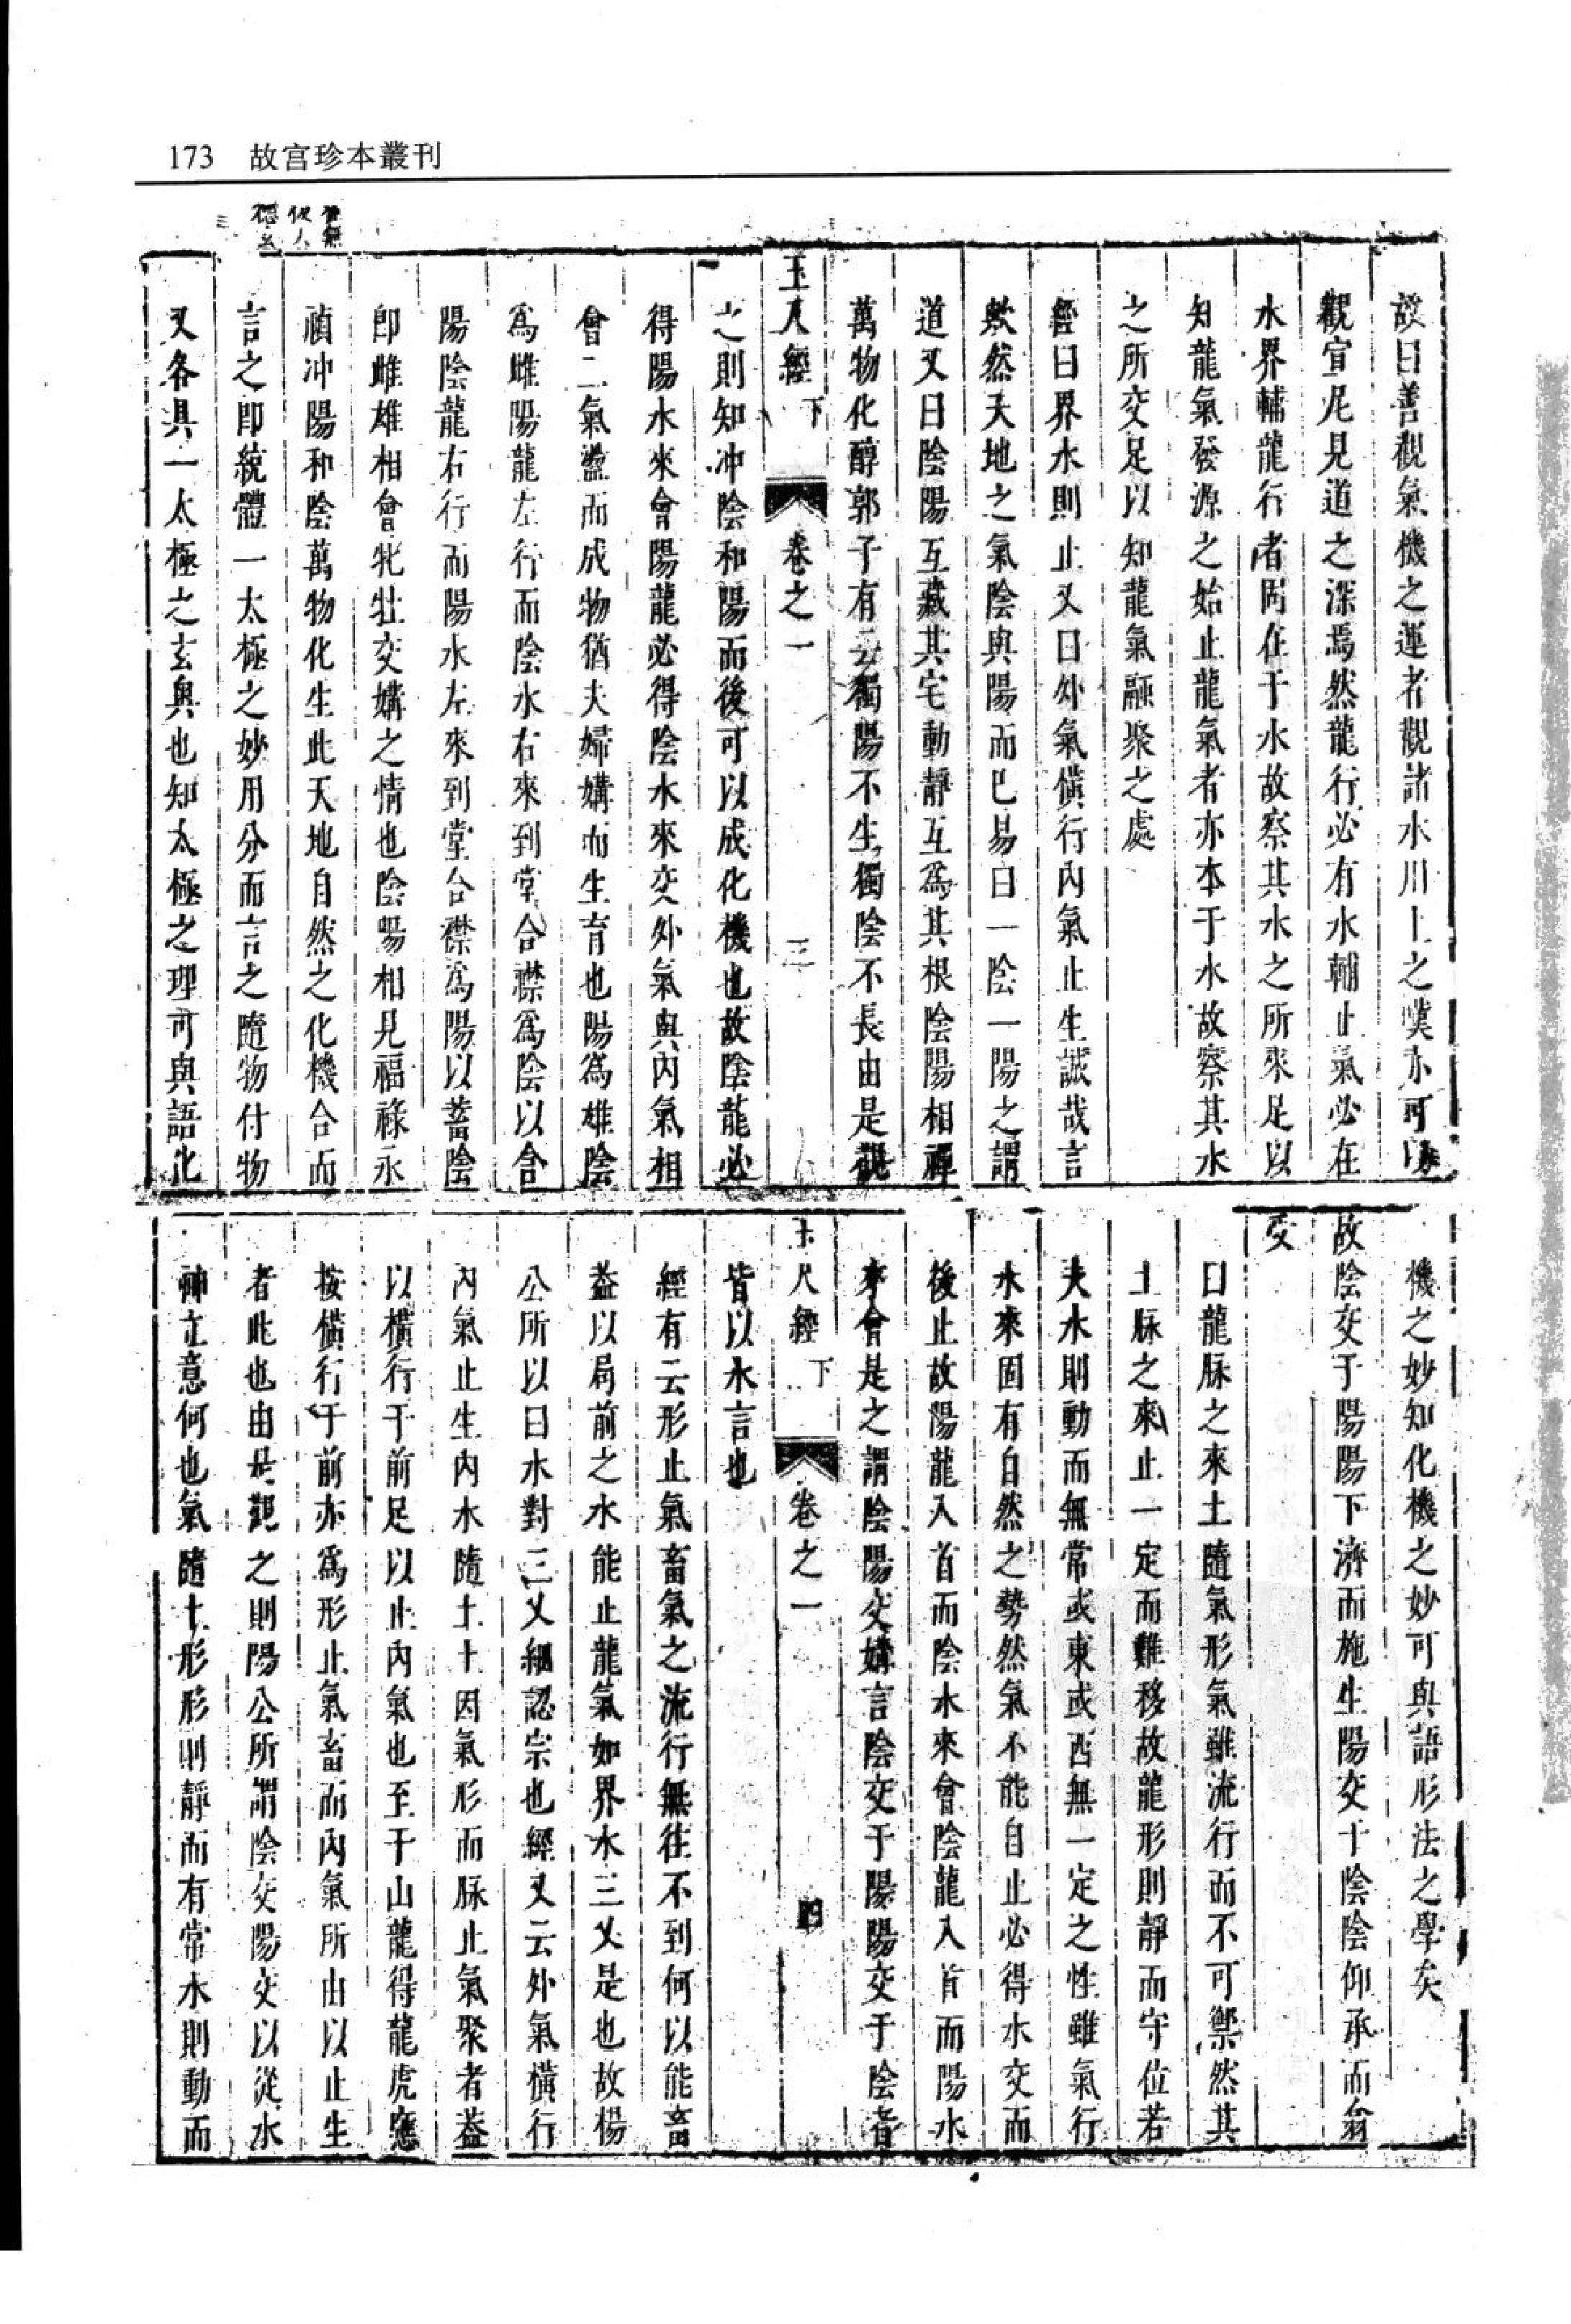 173 故宫珍本叢刊
故曰善觀氣機之運者觀諸水川上之嘆亦可以
觀宣尼見道之深焉然龍行必有水輔止氣必在
水界輔龍行者固在于水故察其水之所來足以
知龍氣發源之始止龍氣者亦本于水故察其水
之所交足以知龍氣融聚之處
經曰界水則止又曰外氣橫行內氣止生誠哉言
歟然天地之氣陰與陽而已易曰一陰一陽之謂
道又曰陰陽互藏其宅動靜互爲其根陰陽相禪
萬物化醇郭子有云獨陽不生獨陰不長由是觀
玉尺經 下 卷之一 三
之則知冲陰和陽而後可以成化機也故陰龍必
得陽水來會陽龍必得陰水來交外氣與內氣相
會二氣盪而成物猶夫婦媾而生育也陽爲雄陰
爲雌陽龍左行而陰水右來到堂合襟爲陰以含
陽陰龍右行而陽水左來到堂合襟爲陽以蓄陰
即雌雄相會牝牡交媾之情也陰陽相見福祿永
禎冲陽和陰萬物化生此天地自然之化機合而
言之即統體一太極之妙用分而言之隨物付物
又各具一太極之玄奥也知太極之理可與語化
機之妙知化機之妙可與語形法之學矣
故陰交于陽陽下濟而施生陽交于陰陰仰承而翕
受
曰龍脉之來土隨氣形氣雖流行而不可禦然其
土脉之來止一定而難移故龍形則靜而守位若
夫水則動而無常或東或西無一定之性雖氣行
水來固有自然之勢然氣不能自止必得水交而
後止故陽龍入首而陰水來會陰龍入首而陽水
來會是之謂陰陽交媾言陰交于陽陽交于陰者
玉尺經 下 卷之一 四
皆以水言也
經有云形止氣畜氣之流行無往不到何以能畜
蓋以局前之水能止龍氣如界水三乂是也故楊
公所以曰水對三乂細認宗也經又云外氣橫行
內氣止生內水隨土土因氣形而脉止氣聚者蓋
以橫行于前足以止內氣也至于山龍得龍虎應
按橫行于前亦爲形止氣畜而內氣所由以止生
者此也由是觀之則陽公所謂陰交陽交以從水
神立意何也氣隨土形形則靜而有常水則動而